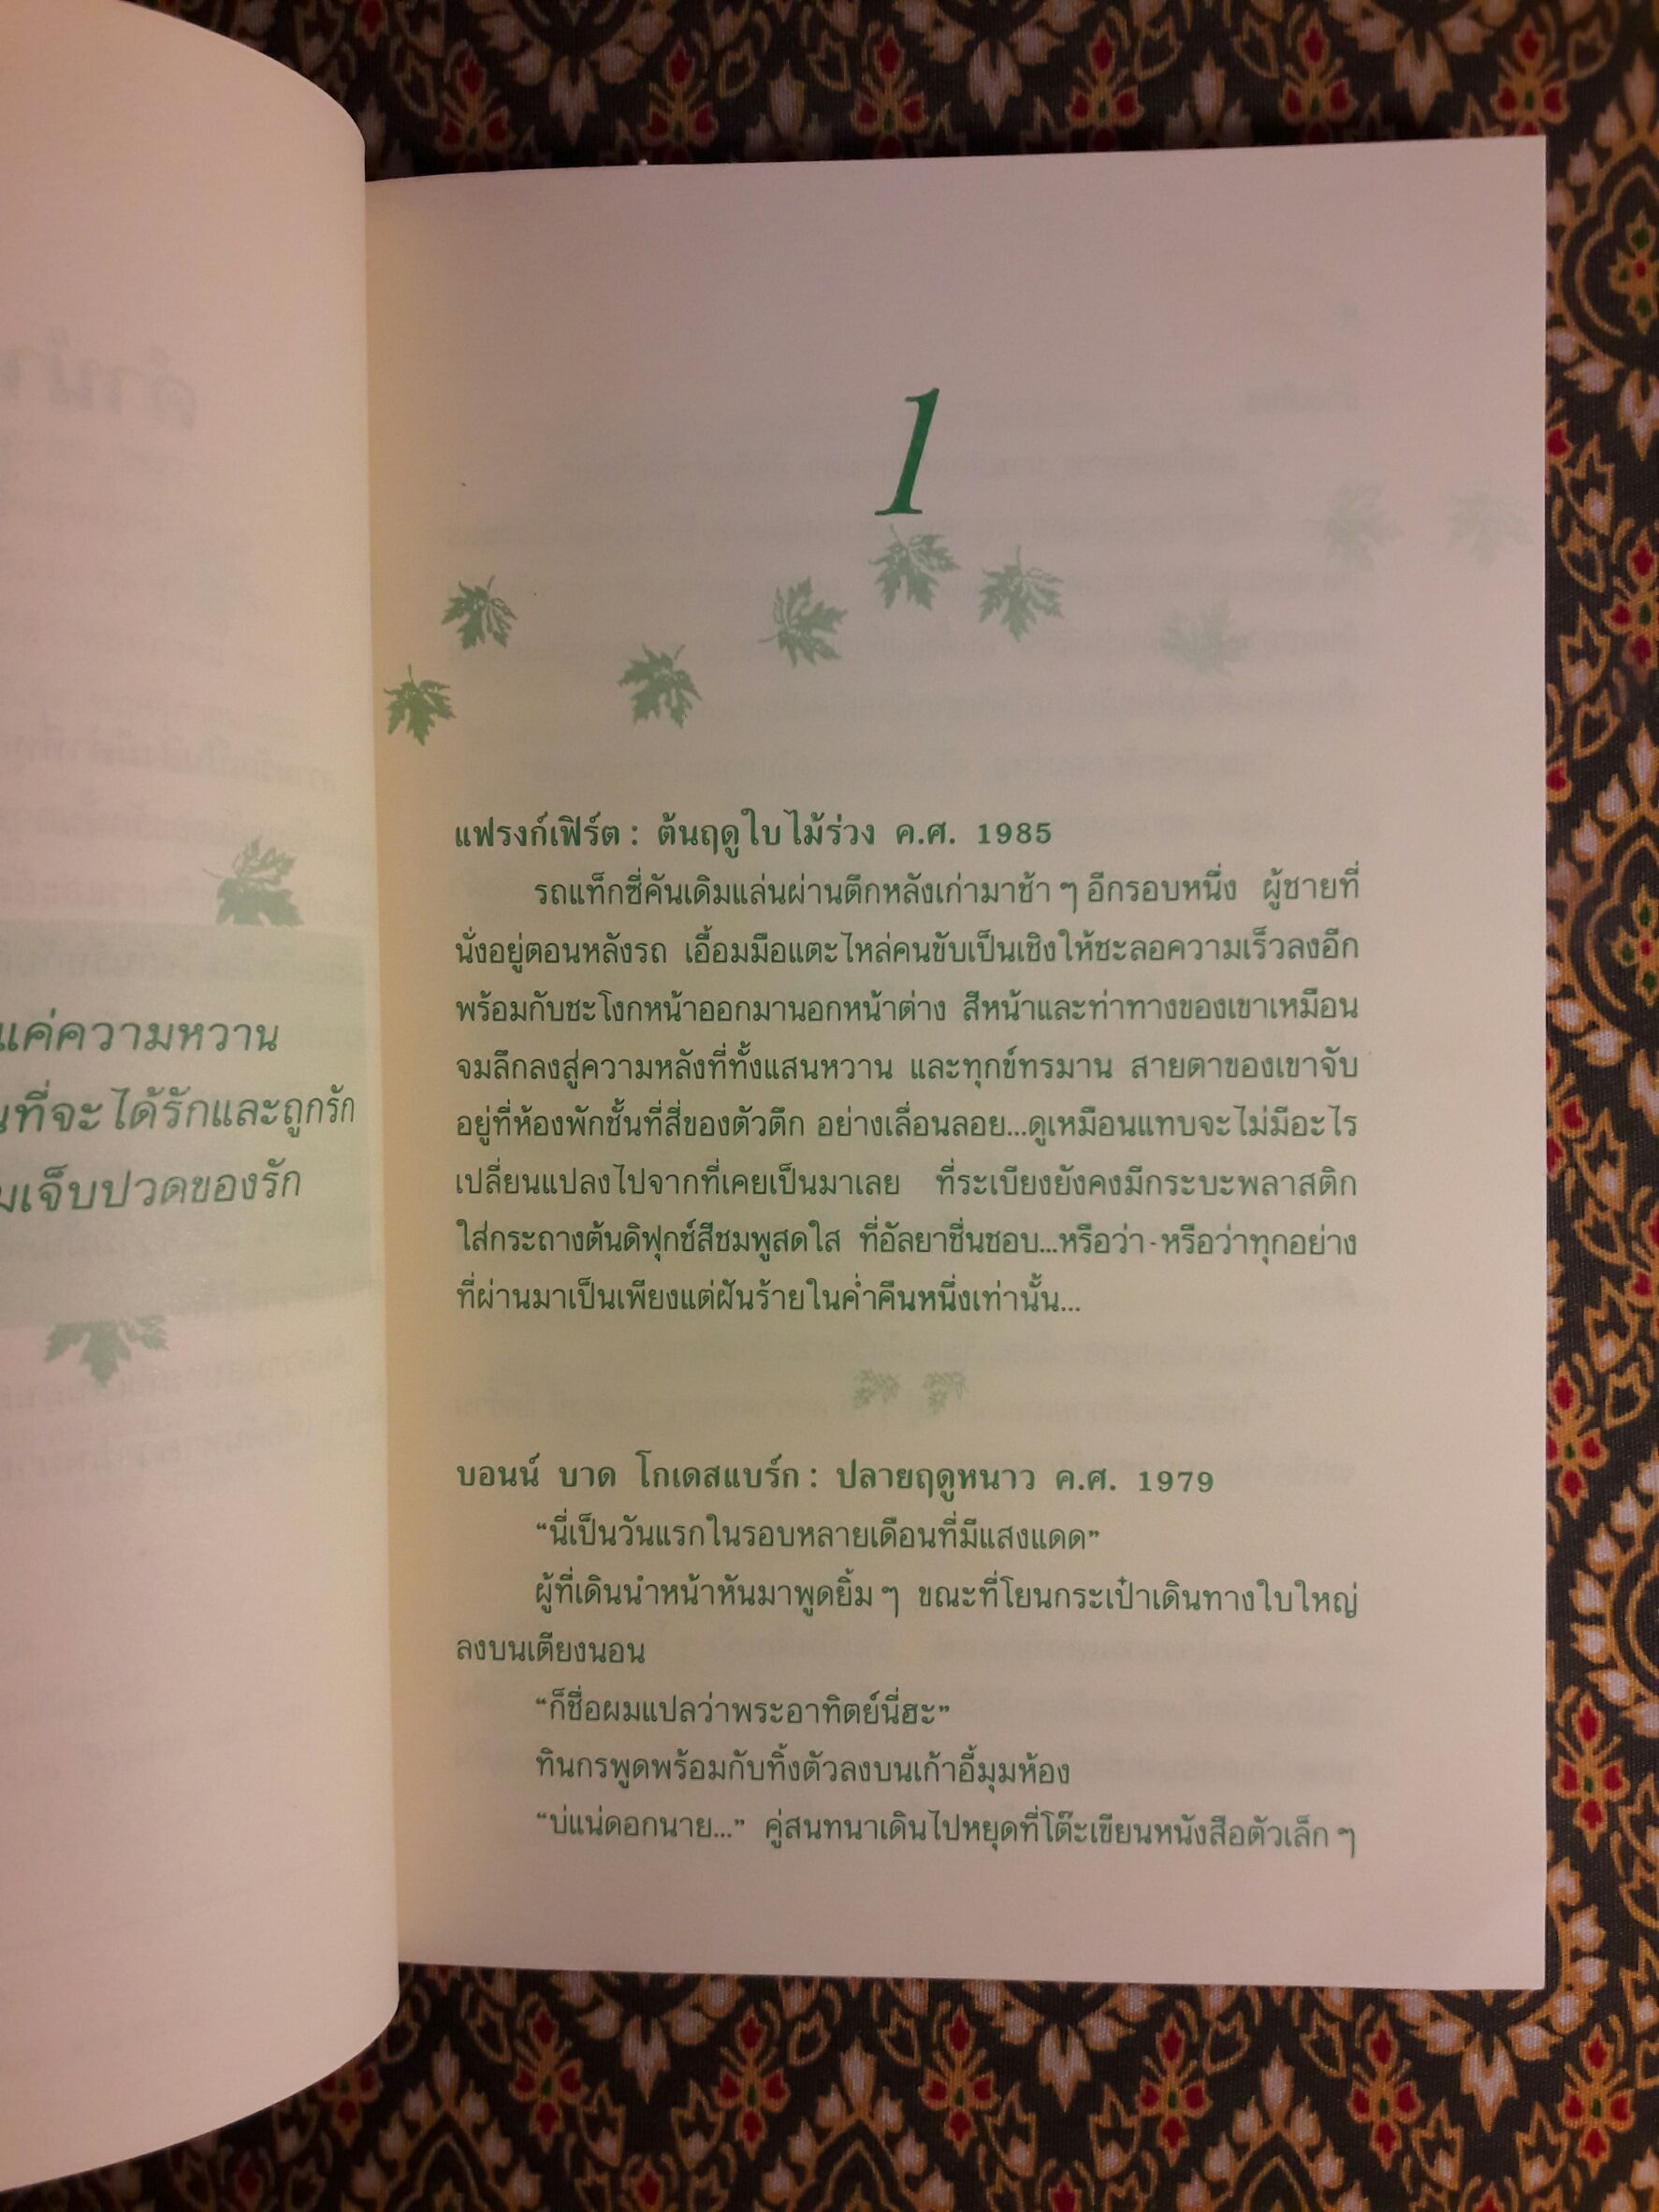 แค่ความหวาน
ที่จะได้รักและถูกรัก
เจ็บปวดของรัก
1
แฟรงก์เฟิร์ต : ต้นฤดูใบไม้ร่วง ค.ศ. 1985
รถแท็กซี่คันเดิมแล่นผ่านตึกหลังเก่ามาช้า ๆ อีกรอบหนึ่ง ผู้ชายที่
นั่งอยู่ตอนหลังรถ เอื้อมมือแตะไหล่คนขับเป็นเชิงให้ชะลอความเร็วลงอีก
พร้อมกับชะโงกหน้าออกมานอกหน้าต่าง สีหน้าและท่าทางของเขาเหมือน
จมลึกลงสู่ความหลังที่ทั้งแสนหวาน และทุกข์ทรมาน สายตาของเขาจับ
อยู่ที่ห้องพักชั้นที่สี่ของตัวตึก อย่างเลื่อนลอย...ดูเหมือนแทบจะไม่มีอะไร
เปลี่ยนแปลงไปจากที่เคยเป็นมาเลย ที่ระเบียงยังคงมีกระบะพลาสติก
ใส่กระถางต้นดิฟุกซ์สีชมพูสดใส ที่อัลยาชื่นชอบ...หรือว่า - หรือว่าทุกอย่าง
ที่ผ่านมาเป็นเพียงแต่ฝันร้ายในค่ำคืนหนึ่งเท่านั้น...
บอนน์ บาด โกเดสแบร์ก : ปลายฤดูหนาว ค.ศ. 1979
“นี่เป็นวันแรกในรอบหลายเดือนที่มีแสงแดด”
ผู้ที่เดินนำหน้าหันมาพูดยิ้ม ๆ ขณะที่โยนกระเป๋าเดินทางใบใหญ่
ลงบนเตียงนอน
“ก็ชื่อผมแปลว่าพระอาทิตย์นี่ฮะ”
ทินกรพูดพร้อมกับทิ้งตัวลงบนเก้าอี้มุมห้อง
“บ่แน่ดอกนาย...” คู่สนทนาเดินไปหยุดที่โต๊ะเขียนหนังสือตัวเล็ก ๆ